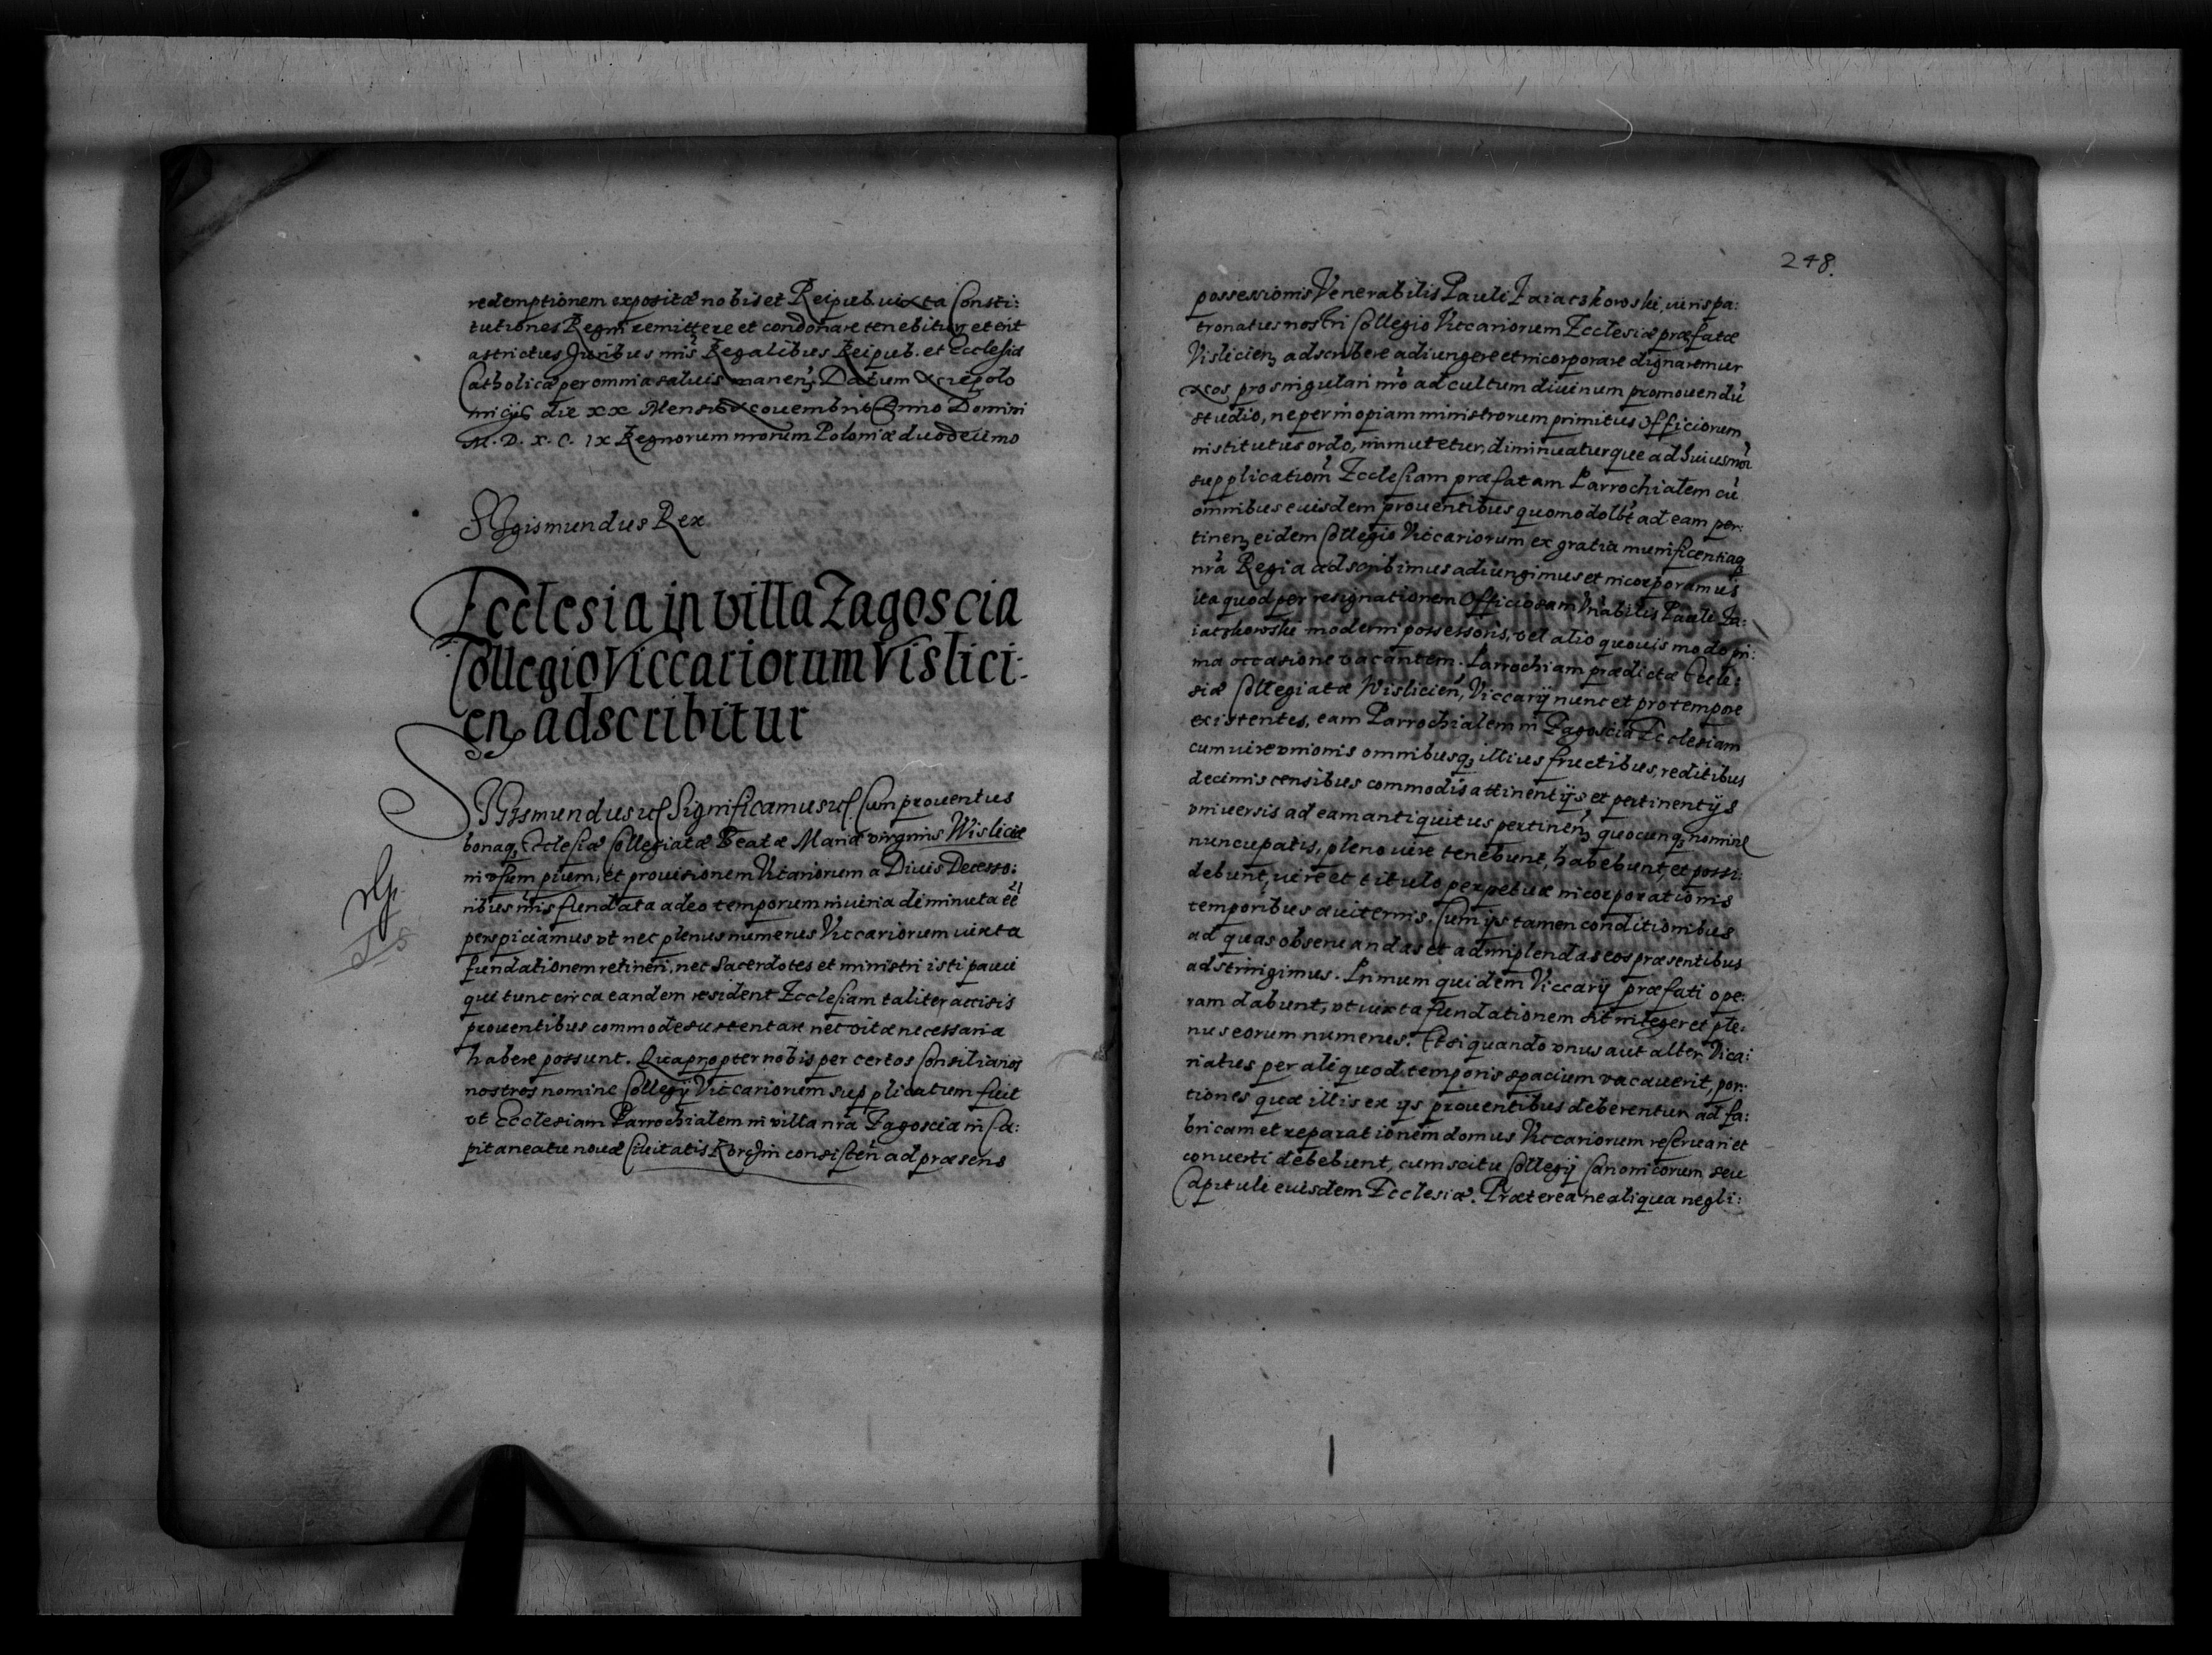 redemptionem expositæ nobis et Reipub. iuxta Consti:
tutiones Regni remittere et condonare tenebitur et erit
astrictus Juribus nris Regalibus Reipub. et Ecclesiæ
Catholicæ per omnia saluis manen. Datum Niepolo
micijs die XX Mensis Nouembris Anno Domini
M. D. X. C. IX Regnorum nrorum Poloniæ duodecimo
Sigismundus Rex
Ecclesia in villa Zagoscia
Collegio Viccariorum Vislici-
en adscribitur
SIGismundus etc Significamus etc. Cum prouentus
bonaq, Ecclesiæ Collegiatæ Beatæ Mariæ virginis Wislicie
in vsum pium, et prouisionem Vicariorum a Diuis Decesso:
ribus nris fundata adeo temporum iniuria diminuta eē
perspiciamus vt nec plenus numerus Viccariorum iuxta
fundationem retineri, nec Sacerdotes et ministri isti pauci
qui tunc circa eandem resident Ecclesiam taliter accisis
prouentibus commode sustentare nec vitæ necessaria
habere possunt. Quapropter nobis per certos Consiliarios
nostros nomine Collegij Viccariorum supplicatum fuit
vt Ecclesiam Parrochialem in villa nra Zagoscia in Ca:
pitaneatu nouæ Ciuitatis Korczin consisten ad præsens
248.
possessionis Venerabilis Pauli Zaiaczkowski, iuris pa:
tronatus nostri Collegio Viccariorum Ecclesiæ præfatæ
Vislicien, adscribere adiungere et incorporare dignaremur
Nos pro singulari nro ad cultum diuinum promouendū
studio, ne per inopiam ministrorum primitus Officiorum
institutus ordo, immutetur, diminuaturque ad huiusmoi
supplicationē Ecclesiam præfatam Parrochialem cū
omnibus euisdem prouentibus quomodolbt ad eam per:
tinen, eidem Collegio Viccariorum ex gratia munificentiaq
nra Regia adscribimus adiungimus et incorporamus
ita quod per resignationem Officiosam Vnabilis Pauli Za:
iaczkowski moderni possessoris, vel alio quouis modo pri:
ma occasione vacantem. Parrochiam prædictæ Eccle:
siæ Collegiatæ Wislicien, Viccarij nunc et pro tempore
existentes, eam Parrochialem in Zagoscia Ecclesiam
cum iure vnionis omnibusq, illius fructibus, reditibus
decimis censibus commodis attinentijs et pertinentijs
vniuersis ad eam antiquitus pertinen, quocunq, nomine
nuncupatis, pleno iure tenebunt, habebunt et possi:
debunt, iure et titulo perpetuæ incorporationis
temporibus æuiternis. Cum ijs tamen conditionibus
ad quas obseruandas et adimplendas eos præsentibus
adstringimus. Primum quidem Viccarij præfati ope:
ram dabunt, vt iuxta fundationem sit integer et ple:
nus eorum numerus. Et si quando vnus aut alter Vica:
riatus per aliquod temporis spacium vacauerit, por:
tiones quæ illis ex ijs prouentibus deberentur ad fa:
bricam et reparationem domus Viccariorum reseruari et
conuerti debebunt, cum scitu Collegij Canonicorum seu
Capituli euisdem Ecclesiæ. Præterea ne aliqua negli: